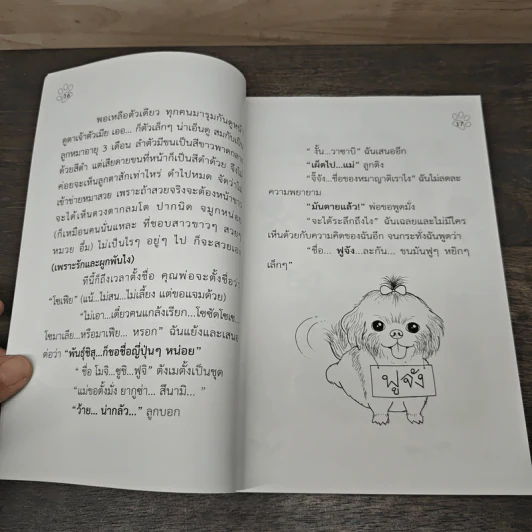 16
พอเหลือตัวเดียว ทุกคนมารุมกันดูหน้า
ดูตาเจ้าตัวเมีย เออ... ก็ตัวเล็กๆ น่าเอ็นดู สมกับเป็น
ลูกหมาอายุ 3 เดือน ลำตัวมีขนเป็นสีขาวพาดกลาง
ด้วยสีดำ แต่เสียดายขนที่หน้าก็เป็นสีดำด้วย จึงไม่
ค่อยจะเห็นลูกตาสักเท่าไหร่ ดำไปหมด จัดว่าไม่
เข้าข่ายหมาสวย เพราะถ้าสวยจริงจะต้องหน้าขาว
จะได้เห็นดวงตากลมโต ปากนิด จมูกหน่อย
(ก็เหมือนคนนั่นแหละ ที่ชอบสาวขาวๆ สวยๆ
หมวย อึ๋ม) ไม่เป็นไรๆ อยู่ๆ ไป ก็จะสวยเอง
(เพราะรักและผูกพันไง)
ทีนี้ก็ถึงเวลาตั้งชื่อ คุณพ่อจะตั้งชื่อว่า
"โซเฟีย" (แน้...ไม่สน...ไม่เลี้ยง แต่ขอแจมด้วย)
"ไม่เอา...เดี๋ยวคนแกล้งเรียก...โซซัดโซเซ...
โซมาเลีย...หรือมาเฟีย... หรอก" ฉันแย้งและเสนอ
ต่อว่า "พันธุ์ชิสุ...ก็ขอชื่อญี่ปุ่นๆ หน่อย"
" ชื่อ โมจิ...ซูชิ...ฟูจิ" ดังเมตั้งเป็นชุด
"แม่ขอตั้งมั่ง ยากูซ่า... สึนามิ... "
"ว้าย... น่ากลัว..." ลูกบอก
17
" งั้น...วาซาบิ" ฉันเสนออีก
"เผ็ดไป...แม่" ลูกติง
"จึ๊จัง...ชื่อของหมาญาติเราไง" ฉันไม่ลดละ
ความพยายาม
"มันตายแล้ว!" พ่อขอพูดมั่ง
"จะได้ระลึกถึงไง" ฉันเฉลยและไม่มีใคร
เห็นด้วยกับความคิดของฉันอีก จนกระทั่งฉันพูดว่า
"ชื่อ... ฟูจัง...ละกัน... ขนมันฟูๆ หยิกๆ
เล็กๆ"
ฟูจัง